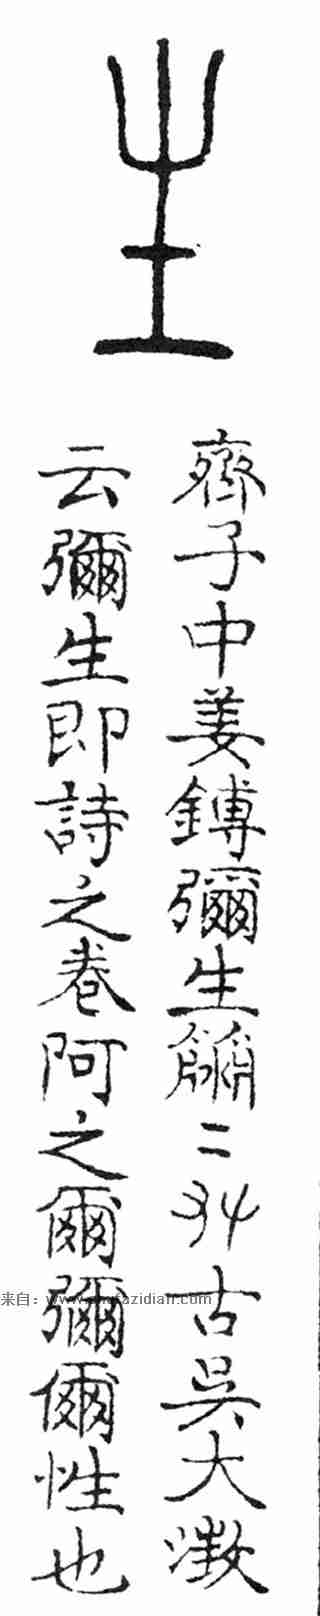 生
齊子中姜鎛彌生㣇二古吳大澂
云彌生即詩之卷阿之爾彌爾性也
来自：www.shufazidian.com